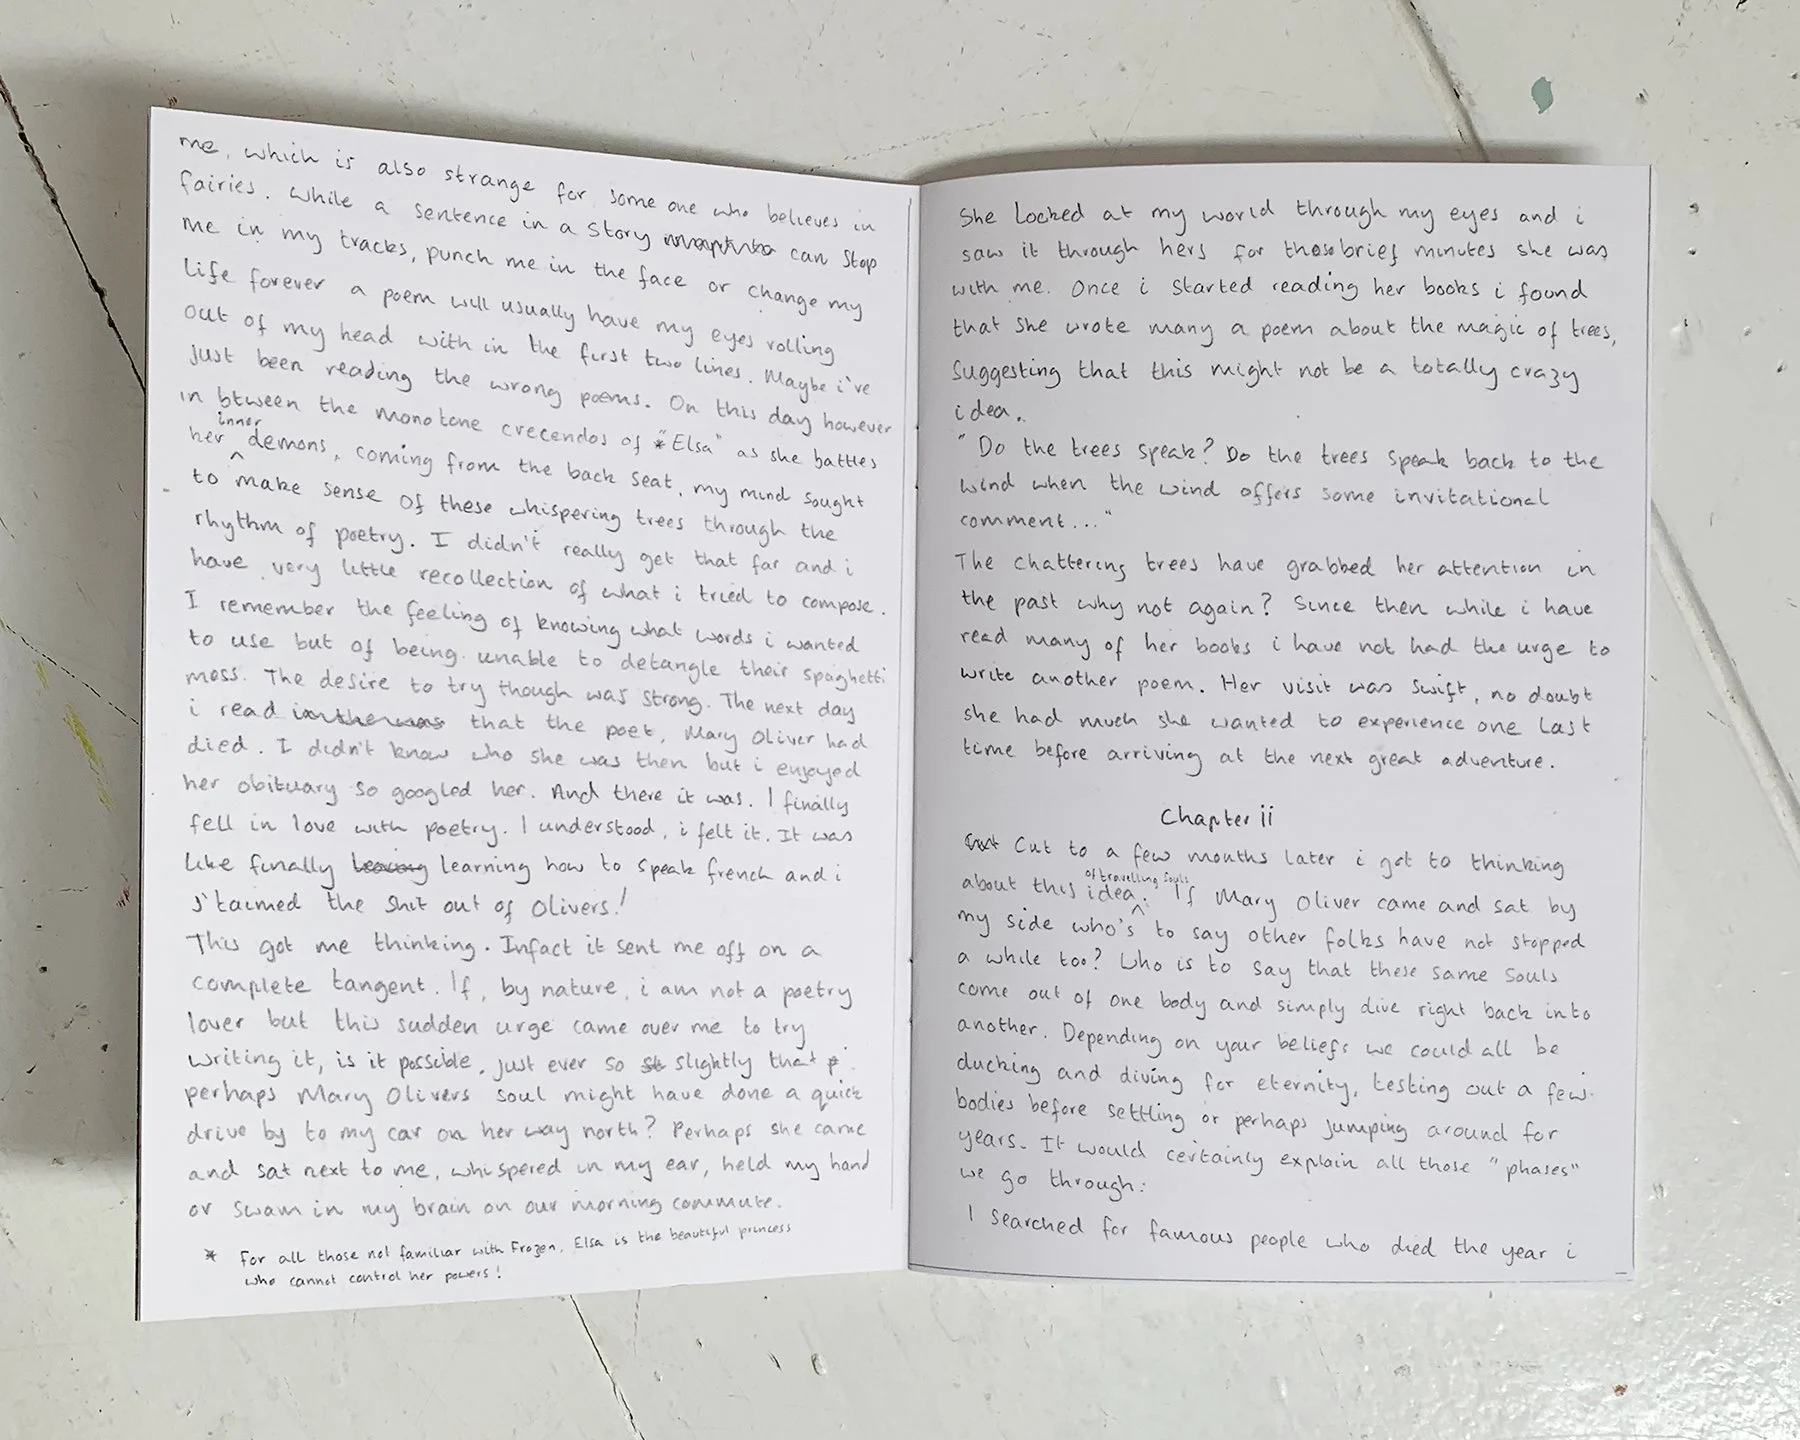 me, which is also strange for some one who believes in
fairies. While a sentence in a story can stop
me in my tracks, punch me in the face or change my
life forever a poem will usually have my eyes rolling
out of my head with in the first two lines. Maybe i've
just been reading the wrong poems. On this day however
in btween the monotone crecendos of *"Elsa" as she battles
her inner demons, coming from the back seat, my mind sought
to make sense of these whispering trees through the
rhythm of poetry. I didn't really get that far and i
have very little recollection of what i tried to compose.
I remember the feeling of knowing what words i wanted
to use but of being unable to detangle their spaghetti
mess. The desire to try though was strong. The next day
i read that the poet, Mary Oliver had
died. I didn't know who she was then but i enjoyed
her obituary so googled her. And there it was. I finally
fell in love with poetry. I understood, i felt it. It was
like finally learning how to speak french and i
j'taimed the shit out of Olivers!
This got me thinking. Infact it sent me off on a
complete tangent. If, by nature, i am not a poetry
lover but this sudden urge came over me to try
writing it, is it possible, just ever so slightly that
perhaps Mary Olivers soul might have done a quick
drive by to my car on her way north? Perhaps she came
and sat next to me, whispered in my ear, held my hand
or swam in my brain on our morning commute.
* For all those not familiar with Frozen, Elsa is the beautiful princess
who cannot control her powers!
She looked at my world through my eyes and i
saw it through hers for those brief minutes she was
with me. Once i started reading her books i found
that she wrote many a poem about the magic of trees,
suggesting that this might not be a totally crazy
idea.
"Do the trees speak? Do the trees speak back to the
wind when the wind offers some invitational
comment..."
The chattering trees have grabbed her attention in
the past why not again? Since then while i have
read many of her books i have not had the urge to
write another poem. Her visit was swift, no doubt
she had much she wanted to experience one last
time before arriving at the next great adventure.
Chapter ii
Cut to a few months later i got to thinking
about this idea of travelling souls. If Mary Oliver came and sat by
my side who's to say other folks have not stopped
a while too? Who is to say that these same souls
come out of one body and simply dive right back into
another. Depending on your beliefs we could all be
ducking and diving for eternity, testing out a few
bodies before settling or perhaps jumping around for
years. It would certainly explain all those "phases"
we go through:
I searched for famous people who died the year i